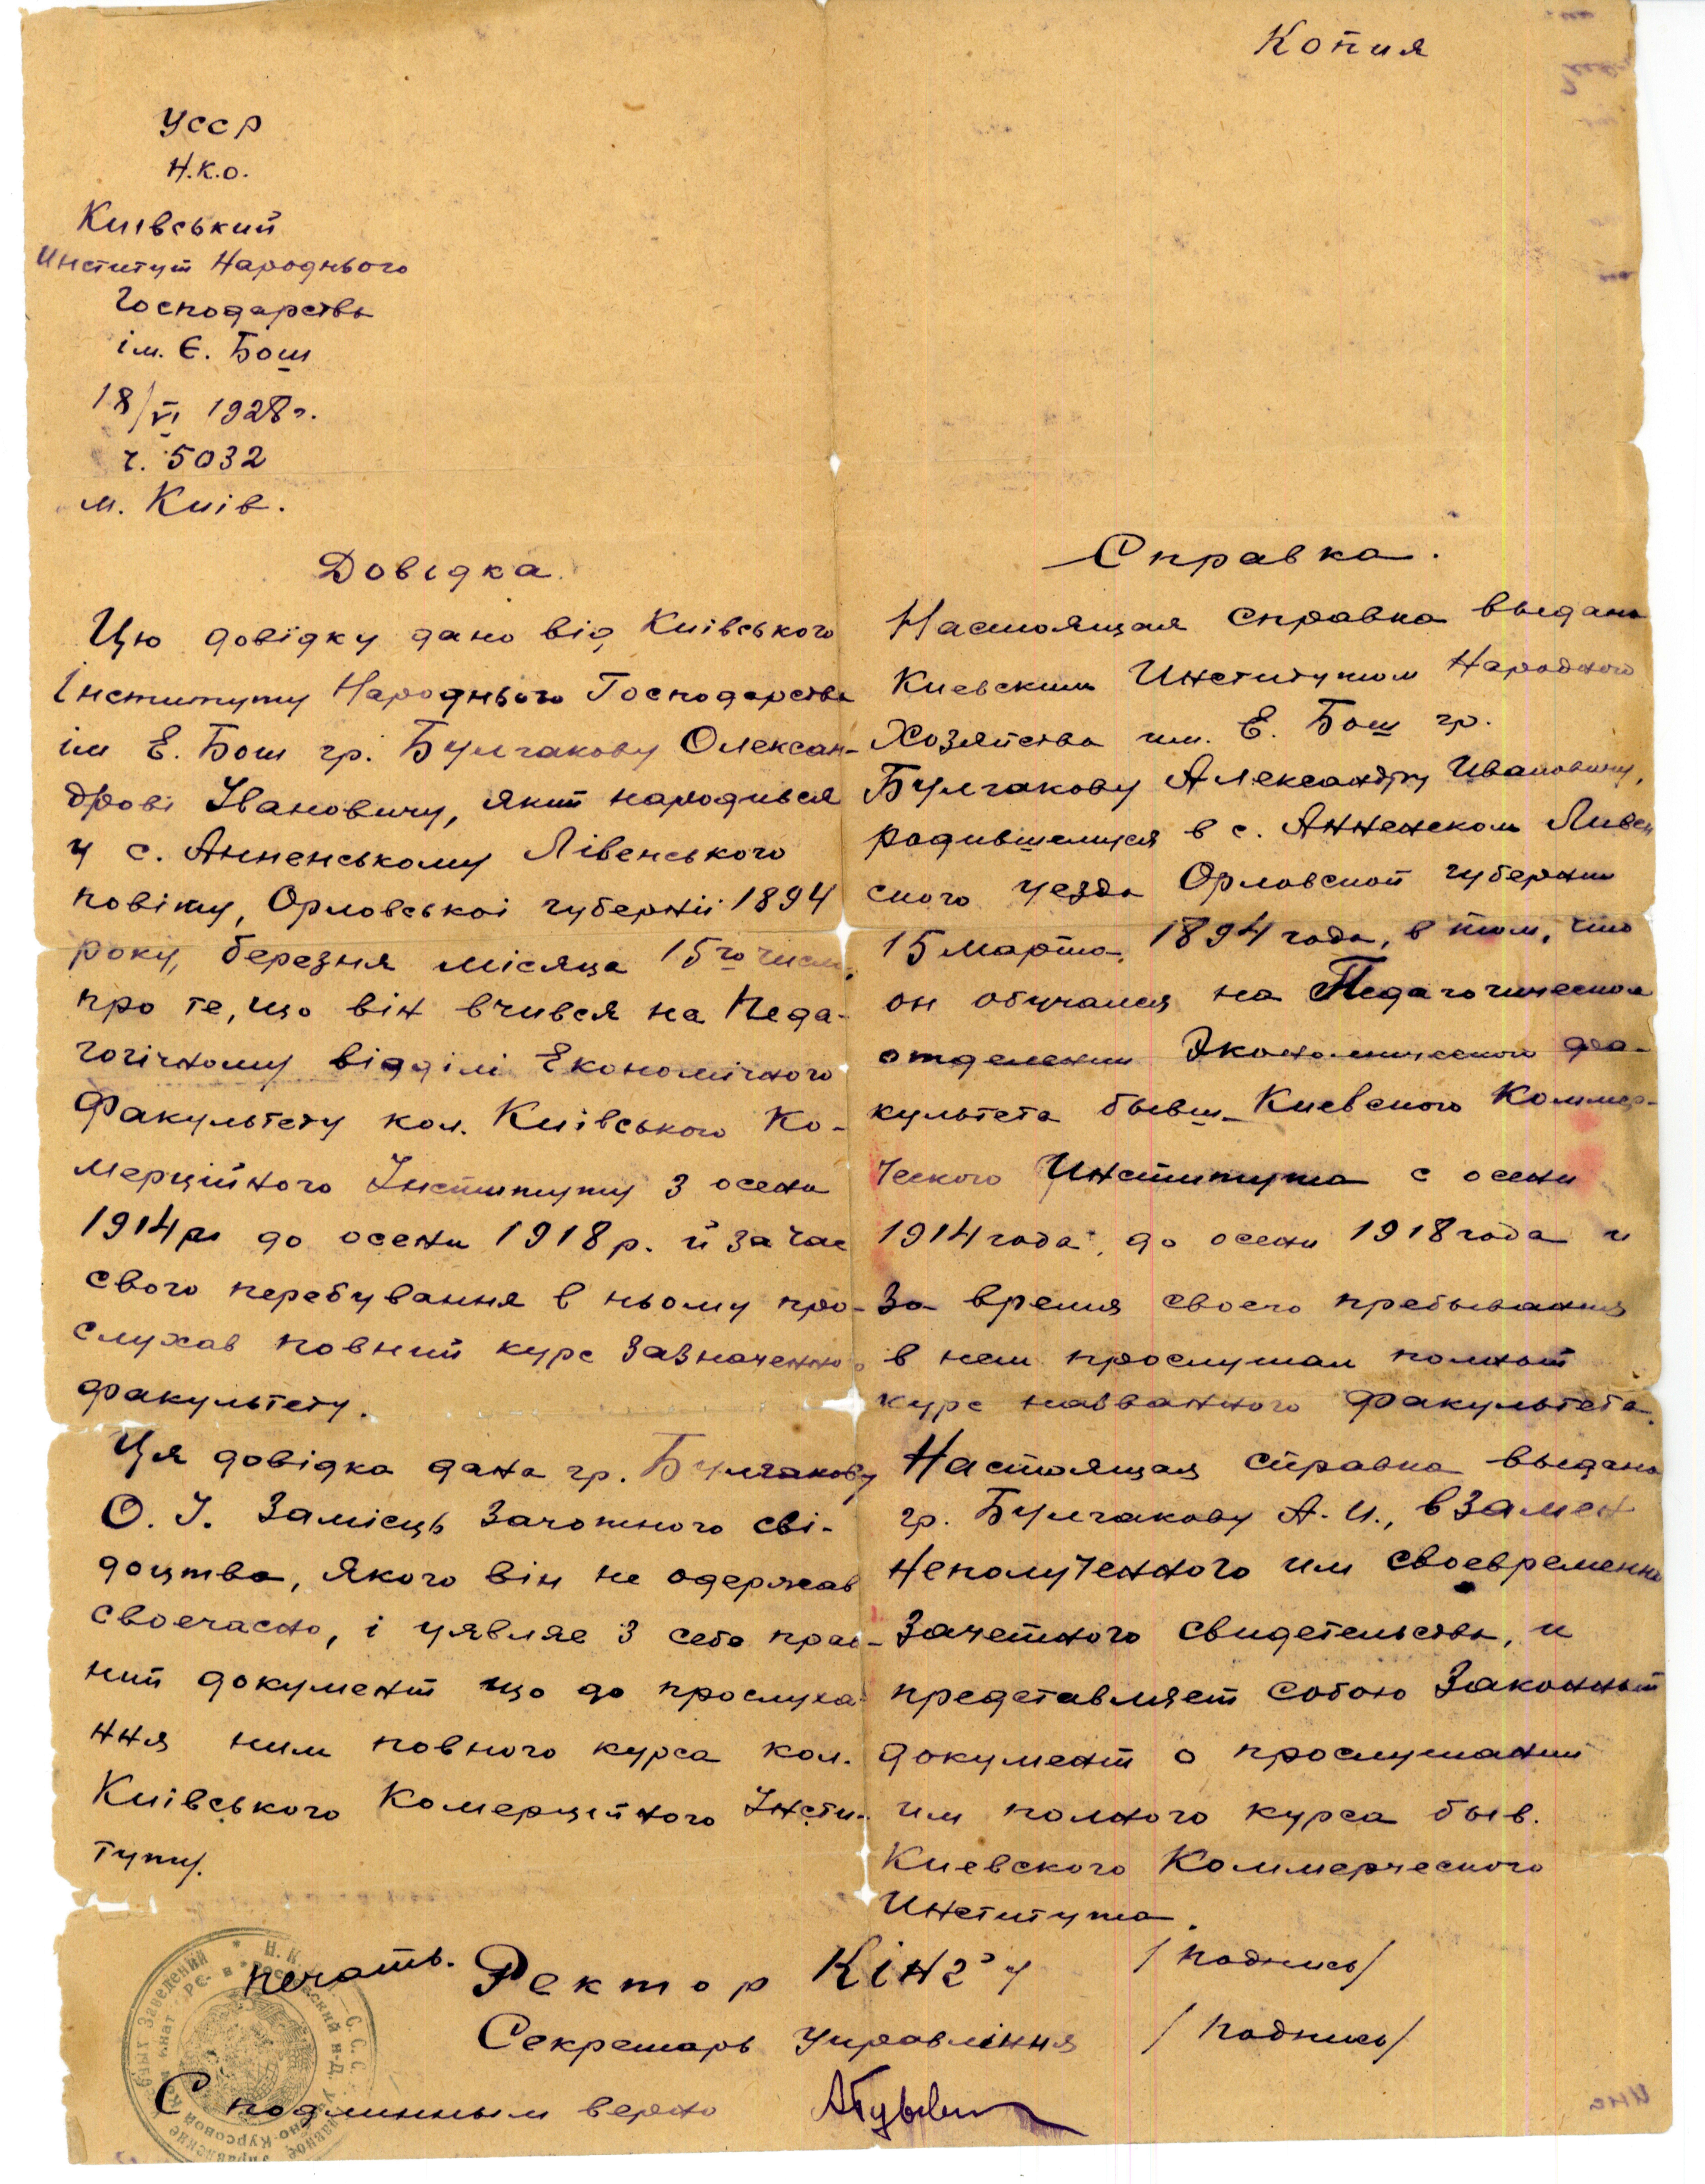 Копия
УССР
Н.К.О.
Київський
Институт Народнього
Господарства
ім. Є. Бош
18/VI 1928 г.
ч. 5032
м. Київ.
Довідка.
Цю довідку дано від Київського
Інституту Народнього Господарства
ім Е. Бош гр. Булгакову Олексан-
дрові Івановичу, який народився
у с. Анненському Лівенського
повіту, Орловськоі губерніі 1894
року, березня місяца 15го числ.
про те, що він вчився на Педа-
гогічному відділі Економічного
Факультету кол. Київського Ко-
мерційного Інституту з осени
1914 р. до осени 1918 р. й за час
свого перебування в ньому про-
слухав повний курс зазначенно
факультету.
Ця довідка дана гр. Булгакову
О. І. замісць зачотного сві-
доцтва, якого він не одержав
своечасно, і уявляе з себе прав-
ний документ що до прослуха-
ння ним повного курса кол.
Київського Комерційного Інсти-
туту.
Справка.
Настоящая справка выдана
Киевским Институтом Народного
Хозяйства им. Е. Бош гр.
Булгакову Александру Ивановичу,
родившемуся в с. Анненском Ливен
ского уезда Орловской губернии
15 марта 1894 года, в том, что
он обучался на Педагогическом
отделении Экономического фа-
культета бывш. Киевского Коммер-
ческого Института с осени
1914 года до осени 1918 года и
за время своего пребывания
в нем прослушал полный
курс названного факультета.
Настоящая справка выдана
гр. Булгакову А. И., взамен
неполученного им своевременно
зачетного свидетельства, и
представляет собою законный
документ о прослушании
им полного курса быв.
Киевского Коммерческого
Института.
печать. Ректор Кінзу /подпись/
Секретарь Управління /подпись/
С подлинным верно